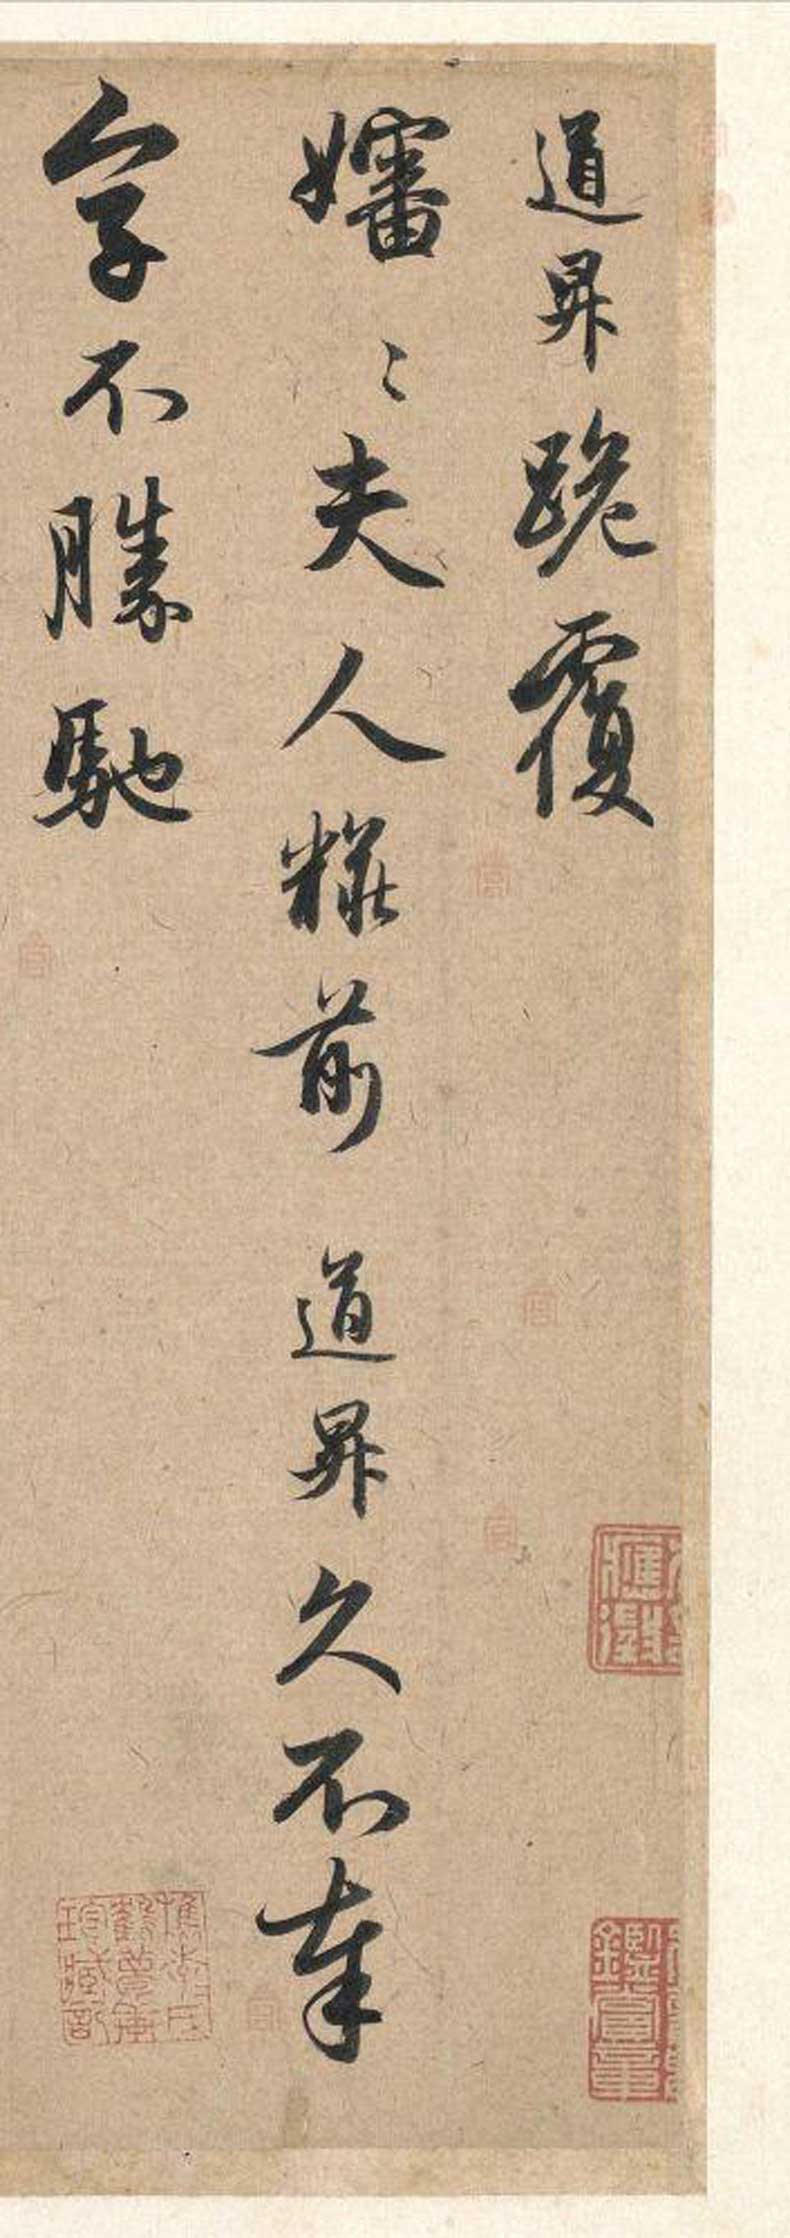 道昇跪覆
嬸〻夫人粧前 道昇久不奉
字不勝馳